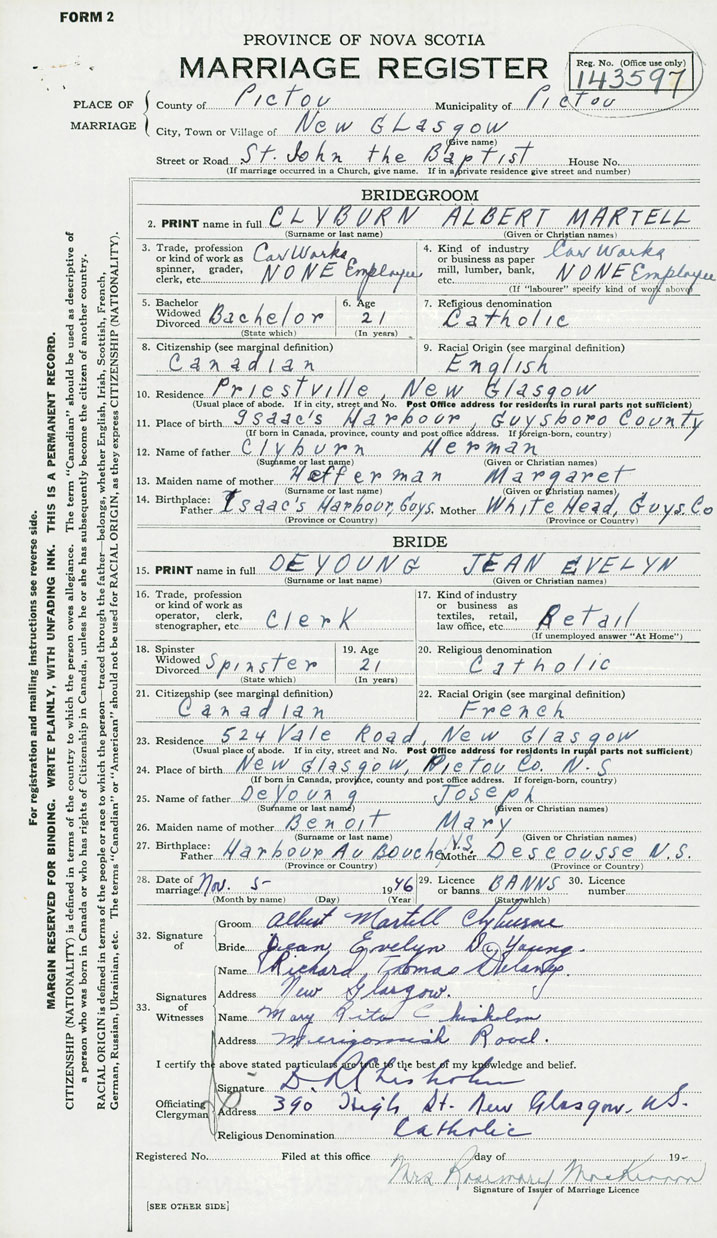 FORM 2
PROVINCE OF NOVA SCOTIA
MARRIAGE REGISTER
Reg. No. (Office use only)
143597
PLACE OF MARRIAGE
County of Pictou Municipality of Pictou
City, Town or Village of New Glasgow
(Give name)
Street or Road St. John the Baptist House No.
(If marriage occurred in a Church, give name. If in a private residence give street and number)
BRIDEGROOM
2. PRINT name in full CLYBURN ALBERT MARTELL
(Surname or last name) (Given or Christian names)
3. Trade, profession or kind of work as spinner, grader, clerk, etc. Car Works NONE Employee
4. Kind of industry or business as paper mill, lumber, bank, etc. Car Works NONE Employee
(If "labourer" specify kind of work above)
5. Bachelor Widowed Divorced Bachelor (State which)
6. Age 21 (In years)
7. Religious denomination Catholic
8. Citizenship (see marginal definition) Canadian
9. Racial Origin (see marginal definition) English
10. Residence Priestville, New Glasgow
(Usual place of abode. If in city, street and No. Post Office address for residents in rural parts not sufficient)
11. Place of birth Isaac's Harbour, Guysboro County
(If born in Canada, province, county and post office address. If foreign-born, country)
12. Name of father Clyburn Herman
(Surname or last name) (Given or Christian names)
13. Maiden name of mother Hefferman Margaret
(Surname or last name) (Given or Christian names)
14. Birthplace: Father Isaac's Harbour, Guys. Mother White Head, Guys. Co
(Province or Country) (Province or Country)
BRIDE
15. PRINT name in full DEYOUNG JEAN EVELYN
(Surname or last name) (Given or Christian names)
16. Trade, profession or kind of work as operator, clerk, stenographer, etc Clerk
17. Kind of industry or business as textiles, retail, law office, etc. Retail
(If unemployed answer "At Home")
18. Spinster Widowed Divorced Spinster (State which)
19. Age 21 (In years)
20. Religious denomination Catholic
21. Citizenship (see marginal definition) Canadian
22. Racial Origin (see marginal definition) French
23. Residence 524 Vale Road, New Glasgow
(Usual place of abode. If in city, street and No. Post Office address for residents in rural parts not sufficient)
24. Place of birth New Glasgow, Pictou Co. N.S
(If born in Canada, province, county and post office address. If foreign-born, country)
25. Name of father DeYoung Joseph
(Surname or last name) (Given or Christian names)
26. Maiden name of mother Benoit Mary
(Surname or last name) (Given or Christian names)
27. Birthplace: Father Harbour Au Bouche N.S. Mother Descousse N.S.
(Province or Country) (Province or Country)
28. Date of marriage Nov. 5 1946
(Month by name) (Day) (Year)
29. Licence or banns BANNS (State which)
30. Licence number
32. Signature of
Groom Albert Martell Clyburne
Bride Jean Evelyn De Young.
33. Signatures of Witnesses
Name Richard Thomas Delaney
Address New Glasgow.
Name Mary Rita Chisholm
Address Merigomish Road.
I certify the above stated particulars are true to the best of my knowledge and belief.
Officiating Clergyman
Signature Chisholm
Address 390 High St. New Glasgow. N.S.
Religious Denomination Catholic
Registered No. Filed at this office day of 19
Mrs Rosemary MacKinnon
Signature of Issuer of Marriage Licence
[SEE OTHER SIDE]
For registration and mailing instructions see reverse side.
MARGIN RESERVED FOR BINDING. WRITE PLAINLY, WITH UNFADING INK. THIS IS A PERMANENT RECORD.
CITIZENSHIP (NATIONALITY) is defined in terms of the country to which the person owes allegiance. The term "Canadian" should be used as descriptive of
a person who was born in Canada or who has rights of Citizenship in Canada, unless he or she has subsequently become the citizen of another country.
RACIAL ORIGIN is defined in terms of the people or race to which the person—traced through the father—belongs, whether English, Irish, Scottish, French,
German, Russian, Ukrainian, etc. The terms "Canadian" or "American" should not be used for RACIAL ORIGIN, as they express CITIZENSHIP (NATIONALITY).